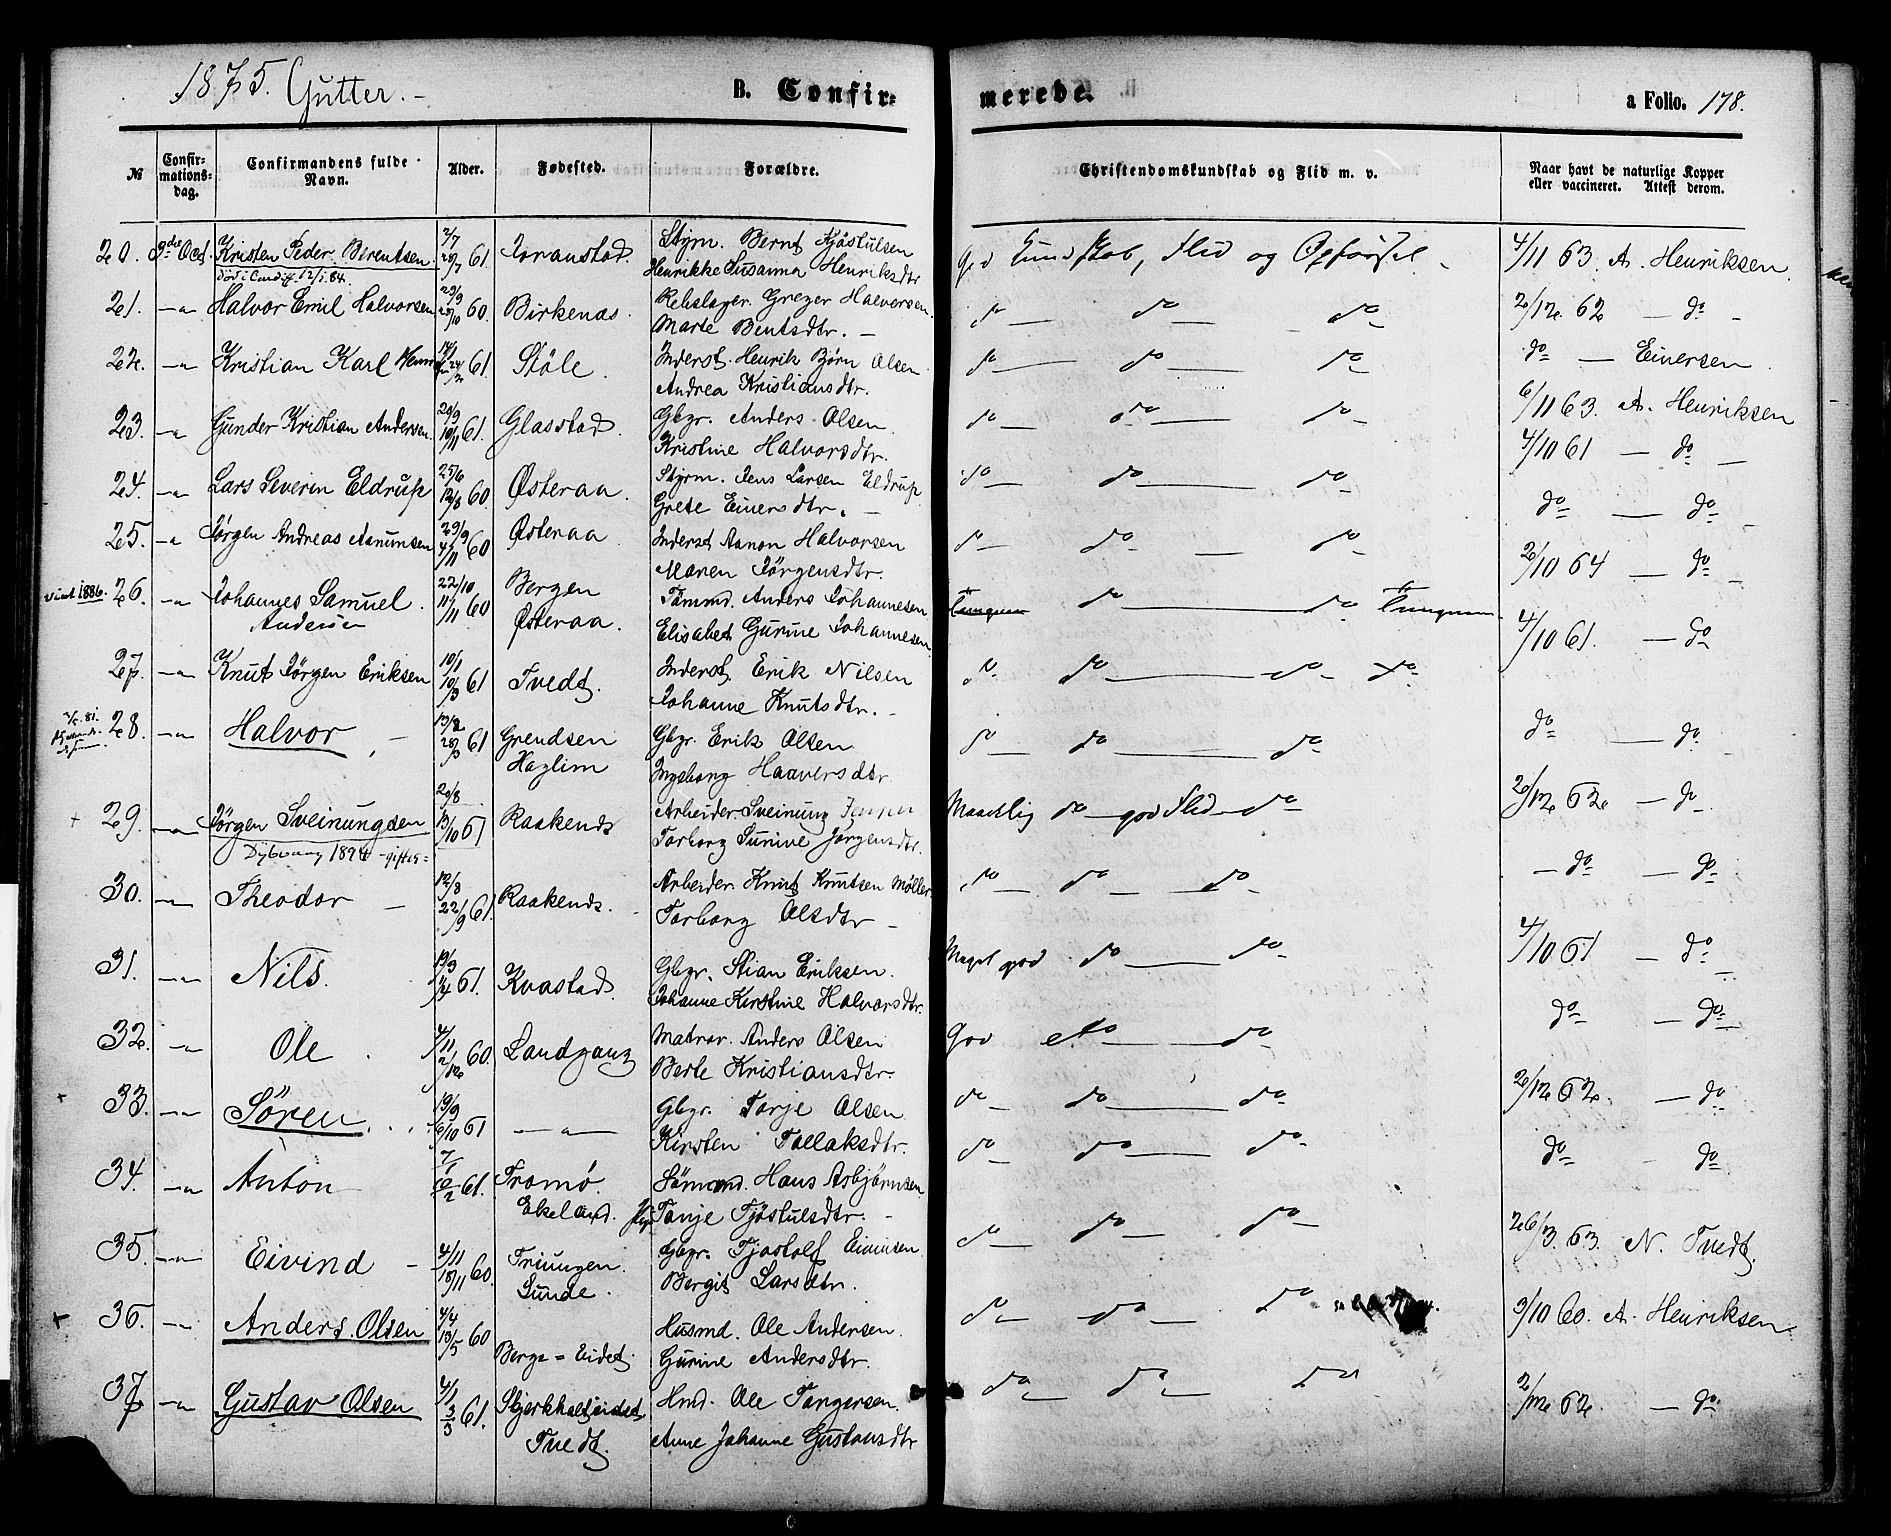 1875. Gutter. -
B. Confir= merede.
a Folio. 178.
№
Confir= mations= dag.
Confirmandens fulde Navn.
Alder.
Fødested.
Forældre.
Christendomskundskab og Flid m. v.
Naar havt de naturlige Kopper eller vaccineret. Attest derom.
20. 3die Oct. Kristen Peder Berentsen 61 Styrm. Bernt Kjøstulsen God Kundskab, Flid og Opførsel. 4/11 63. A. Henriksen
død i Cardiff 12/1.84. Henrikke Susanna Henriksdtr
21. -"- Halvor Emil Halvorsen 60. Birkenes Rebslager. Greger Halvorsen. do do do 2/12 62 - do -
Marte Bentsdtr. -
22. -"- Kristian Karl 61 Støle. Inderst. Henrik Bjørn Olsen do do do do - Einersen
Andrea Kristiansdtr.
23. -"- Gunder Kristian Andersen 61. Glasstad. Gbgr. Anders Olsen. do do do 6/11 63. A. Henriksen
Kristine Halvorsdtr.
24. -"- Lars Severin Eldrup 60 Østeraa. Styrm. Jens Larsen Eldrup do do do 4/10 61 - do -
Grete Einersdtr. -
25. -"- Jørgen Andreas Aanunsen 29/9 4/11 60 Østeraa Inderst Aanon Halvorsen do do do do - do -
Maren Jørgensdtr.
26. -"- Johannes Samuel Andersen 22/10 11/11 60 Bergen Østeraa. Tømmd. Anders Johannesen do do 2/10 64 - do
Elisabet Gurine Johannesen
27. -"- Knut Jørgen Eriksen 10/1 10/3 61 Tvedt. Inderst. Erik Nilsen do do do do 4/10 61. - do
Johanne Knutsdtr. -
28. -"- Halvor 61 Grendsen Gbgr. Erik Olsen do do do do - do
Ingeborg Haaversdtr
+ 29. -"- Jørgen Sveinungsen 61 Raakenes Arbeider Sveinung Maadelig do - god Flid - do 2/12 62 - do
Dybvaag 1894 - giftes= Torborg Jørgensdtr.
30. -"- Theodor - 12/8 22/9 61. Raakenes. Arbeider. Knut Knutsen Møller do do do - do - do
Torborg Olsdtr -
31. -"- Nils. 19/3 61. Kvastad. Gbgr. Stian Eriksen. Meget god do do 4/10 61 - do
Johanne Kirstine Halvorsdtr.
32. -"- Ole 4/11 2/12 60. Landgang Matros. Anders Olsen God do do do - do
Berte Kristiansdtr.
+ 33. -"- Søren 61 -"- Gbgr. Tarje Olsen do do do 2/12 62 - do
Kirsten Tallaksdtr.
34. -"- Anton 61. Tromø. Ekeland. Sømand. Hans Asbjørnsen do do do do - do
Tanje Tjøstulsdtr. -
35. -"- Eivind - 4/11 18/11 60. Sunde. Gbgr. Tjostolf Eivinsen. do do do 26/3. 63. N. Tvedt.
Bergit Larsdtr.
+ 36. -"- Anders Olsen 4/4 60 Berge = Eidet. Husmd. Ole Andersen. do do do 3/10 60. A. Henriksen
Gurine Andersdtr.
37. -"- Gustav Olsen 4/1 3/3 61. Tvedt. Hmd. Ole Tangersen. do do do 2/12 62. - do
Anne Johanne Gustavsdtr